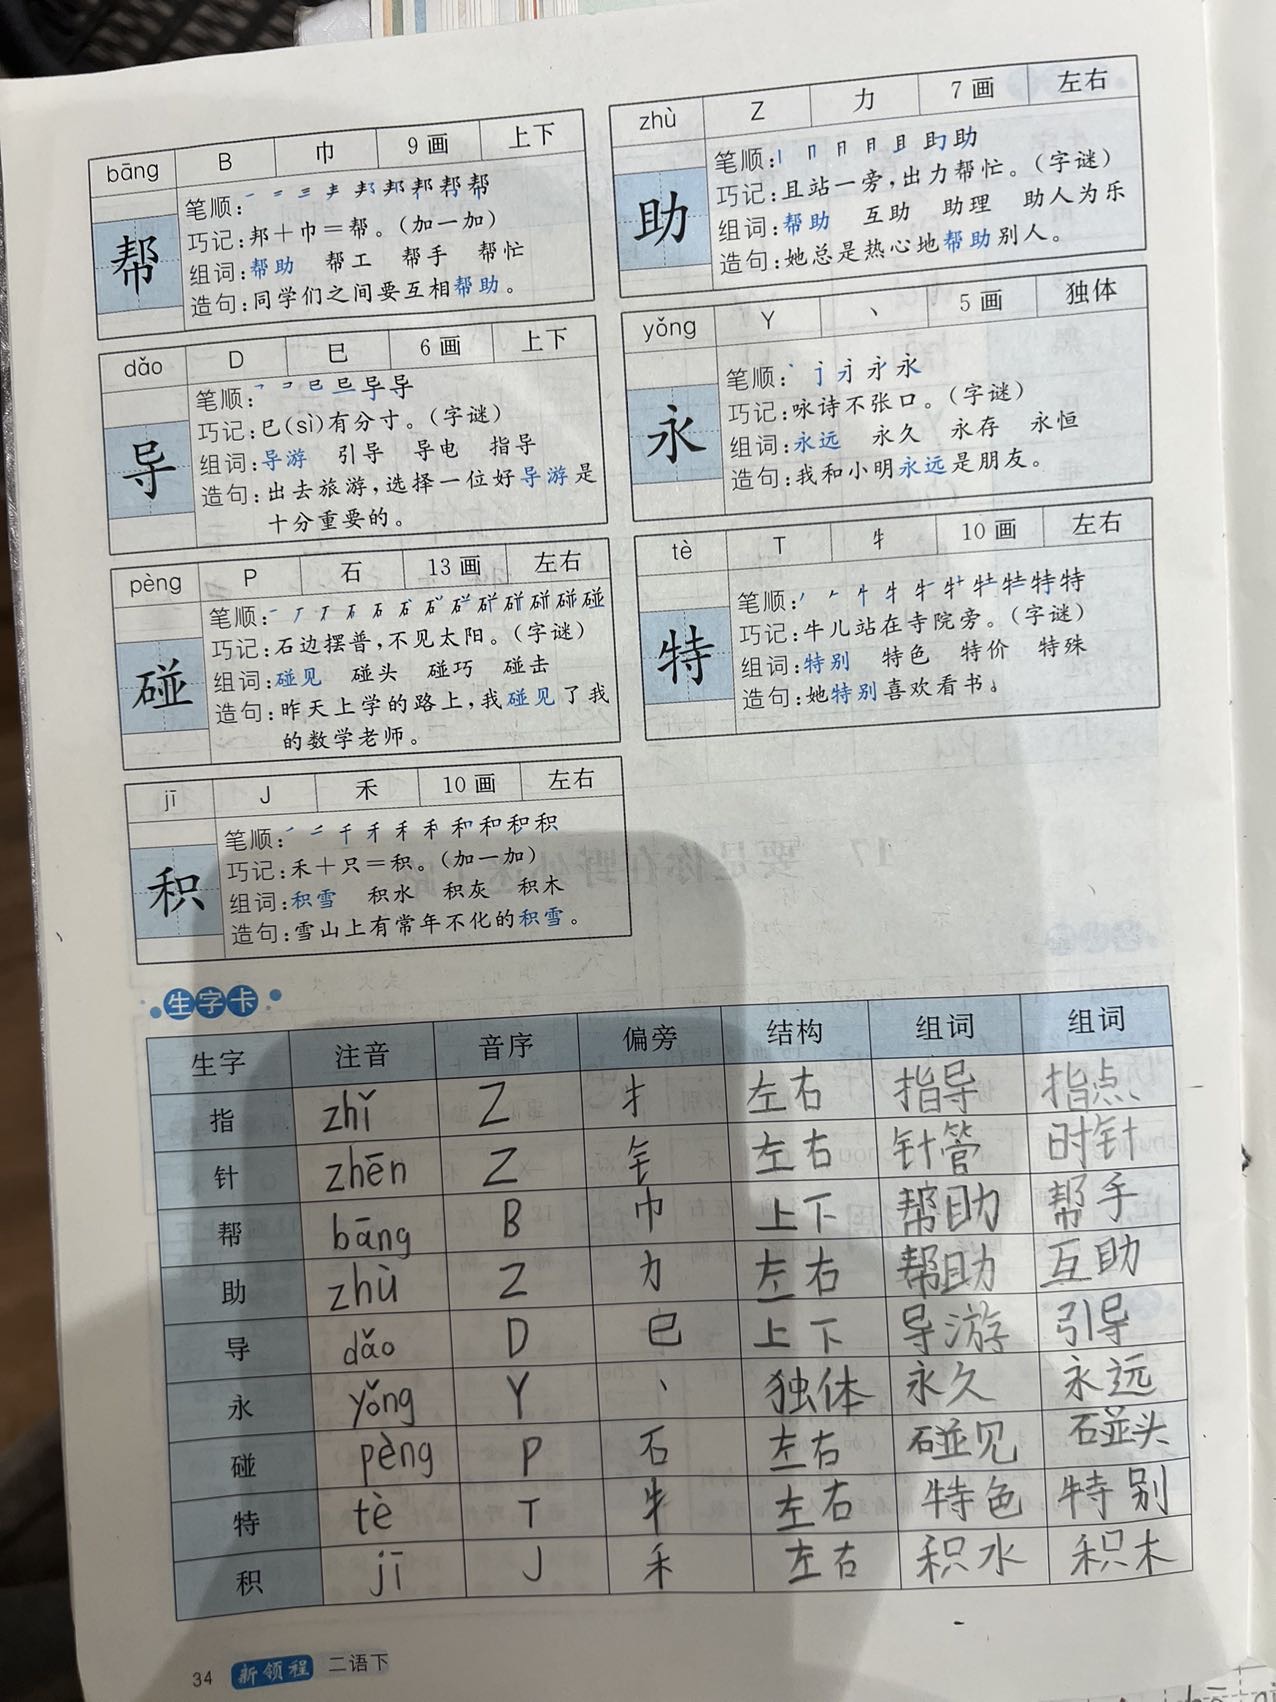 bāng B 巾 9画 上下
帮
笔顺:一 二 三 丰 邦 邦 邦 帮 帮
巧记:邦＋巾＝帮。(加一加)
组词:帮助 帮工 帮手 帮忙
造句:同学们之间要互相帮助。
dǎo D 巳 6画 上下
导
笔顺:
巧记:巳(sì)有分寸。(字谜)
组词:导游 引导 导电 指导
造句:出去旅游,选择一位好导游是
十分重要的。
pèng P 石 13画 左右
碰
笔顺:
巧记:石边摆普,不见太阳。(字谜)
组词:碰见 碰头 碰巧 碰击
造句:昨天上学的路上,我碰见了我
的数学老师。
jī J 禾 10画 左右
积
笔顺:
巧记:禾＋只＝积。(加一加)
组词:积雪 积水 积灰 积木
造句:雪山上有常年不化的积雪。
zhù Z 力 7画 左右
助
笔顺:
巧记:且站一旁,出力帮忙。(字谜)
组词:帮助 互助 助理 助人为乐
造句:她总是热心地帮助别人。
yǒng Y 丶 5画 独体
永
笔顺:
巧记:咏诗不张口。(字谜)
组词:永远 永久 永存 永恒
造句:我和小明永远是朋友。
tè T 牜 10画 左右
特
笔顺:
巧记:牛儿站在寺院旁。(字谜)
组词:特别 特色 特价 特殊
造句:她特别喜欢看书。
生字卡
生字 注音 音序 偏旁 结构 组词 组词
指 zhǐ Z 扌 左右 指导 指点
针 zhēn Z 钅 左右 针管 时针
帮 bāng B 巾 上下 帮助 帮手
助 zhù Z 力 左右 帮助 互助
导 dǎo D 巳 上下 导游 引导
永 yǒng Y 丶 独体 永久 永远
碰 pèng P 石 左右 碰见 碰头
特 tè T 牜 左右 特色 特别
积 jī J 禾 左右 积水 积木
34 新领程 二语下